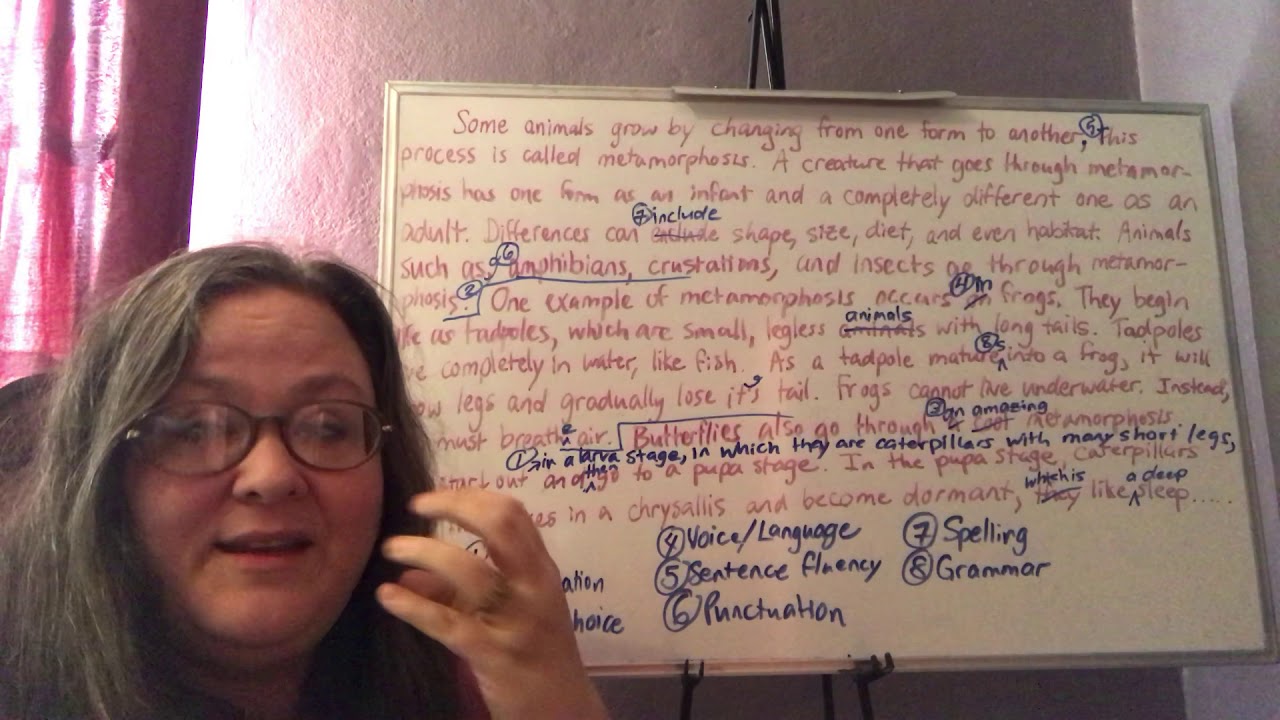 Some animals grow by changing from one form to another, ⑤ This
process is called metamorphosis. A creature that goes through metamor-
phosis has one form as an infant and a completely different one as an
⑦ include
adult. Differences can shape, size, diet, and even habitat. Animals
⑥
such as, amphibians, crustations, and insects go through metamor-
② ④ in
phosis. One example of metamorphosis occurs in frogs. They begin
animals
as tadpoles, which are small, legless with long tails. Tadpoles
⑧ s
completely in water, like fish. As a tadpole mature into a frog, it will
legs and gradually lose it's tail. Frogs cannot live underwater. Instead,
③ an amazing
must breath e air. Butterflies also go through a cool metamorphosis
① in a larva stage, in which they are caterpillars with many short legs,
start out and go to a pupa stage. In the pupa stage, caterpillars
then which is a deep
in a chrysallis and become dormant, they like sleep.....
④ Voice/Language ⑦ Spelling
ation ⑤ Sentence fluency ⑧ Grammar
hoice ⑥ Punctuation